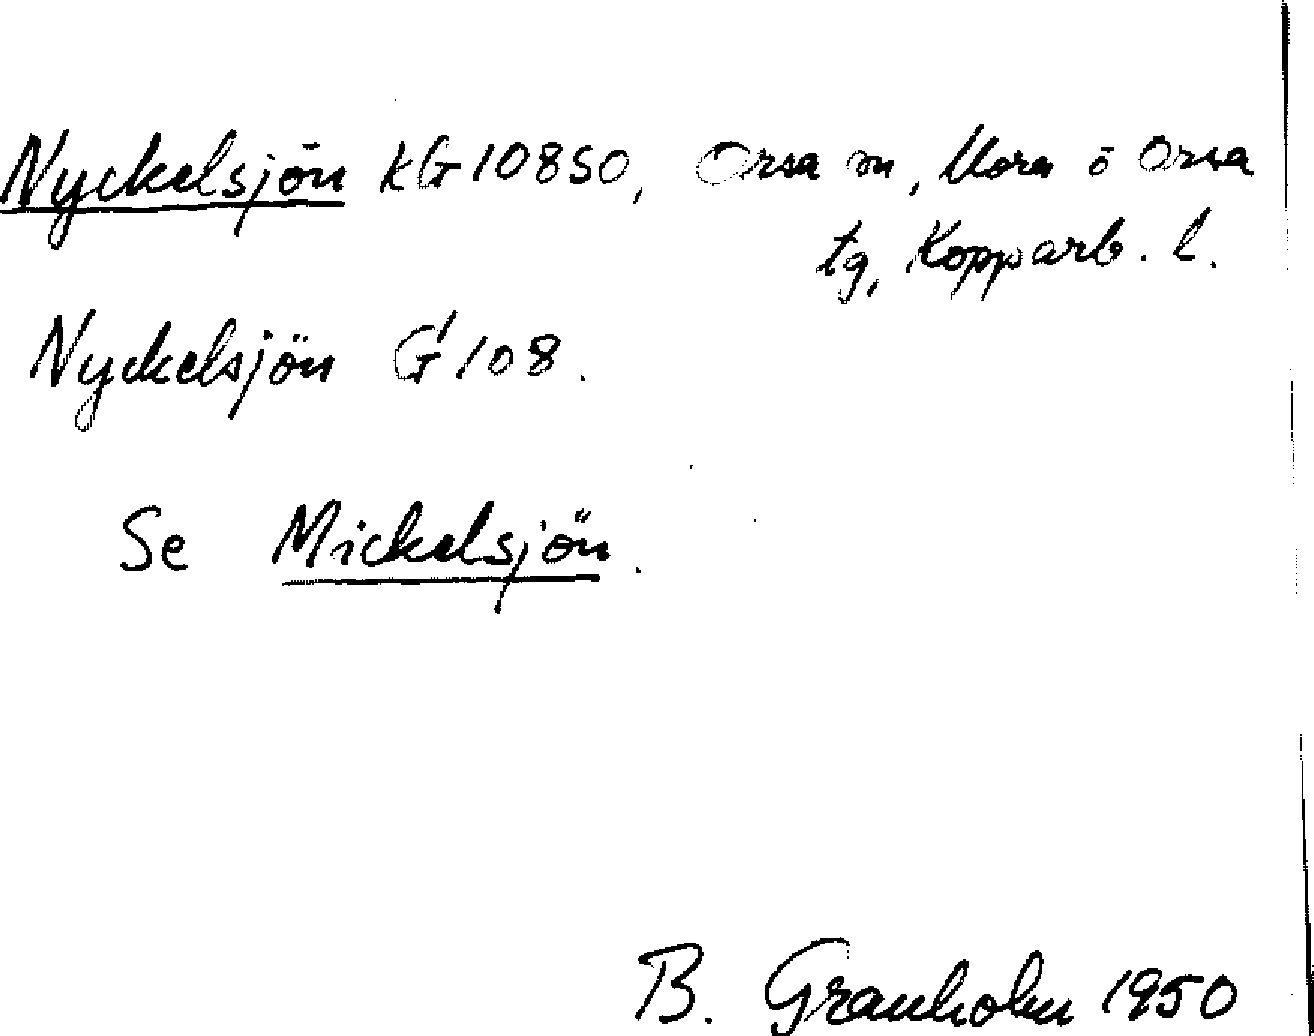 Nyckelsjön KG 10850, Orsa sn, Mora o Orsa
tg, Kopparb. l.
Nyckelsjön G 108.
Se Mickelsjön.
B. Granholm 1950